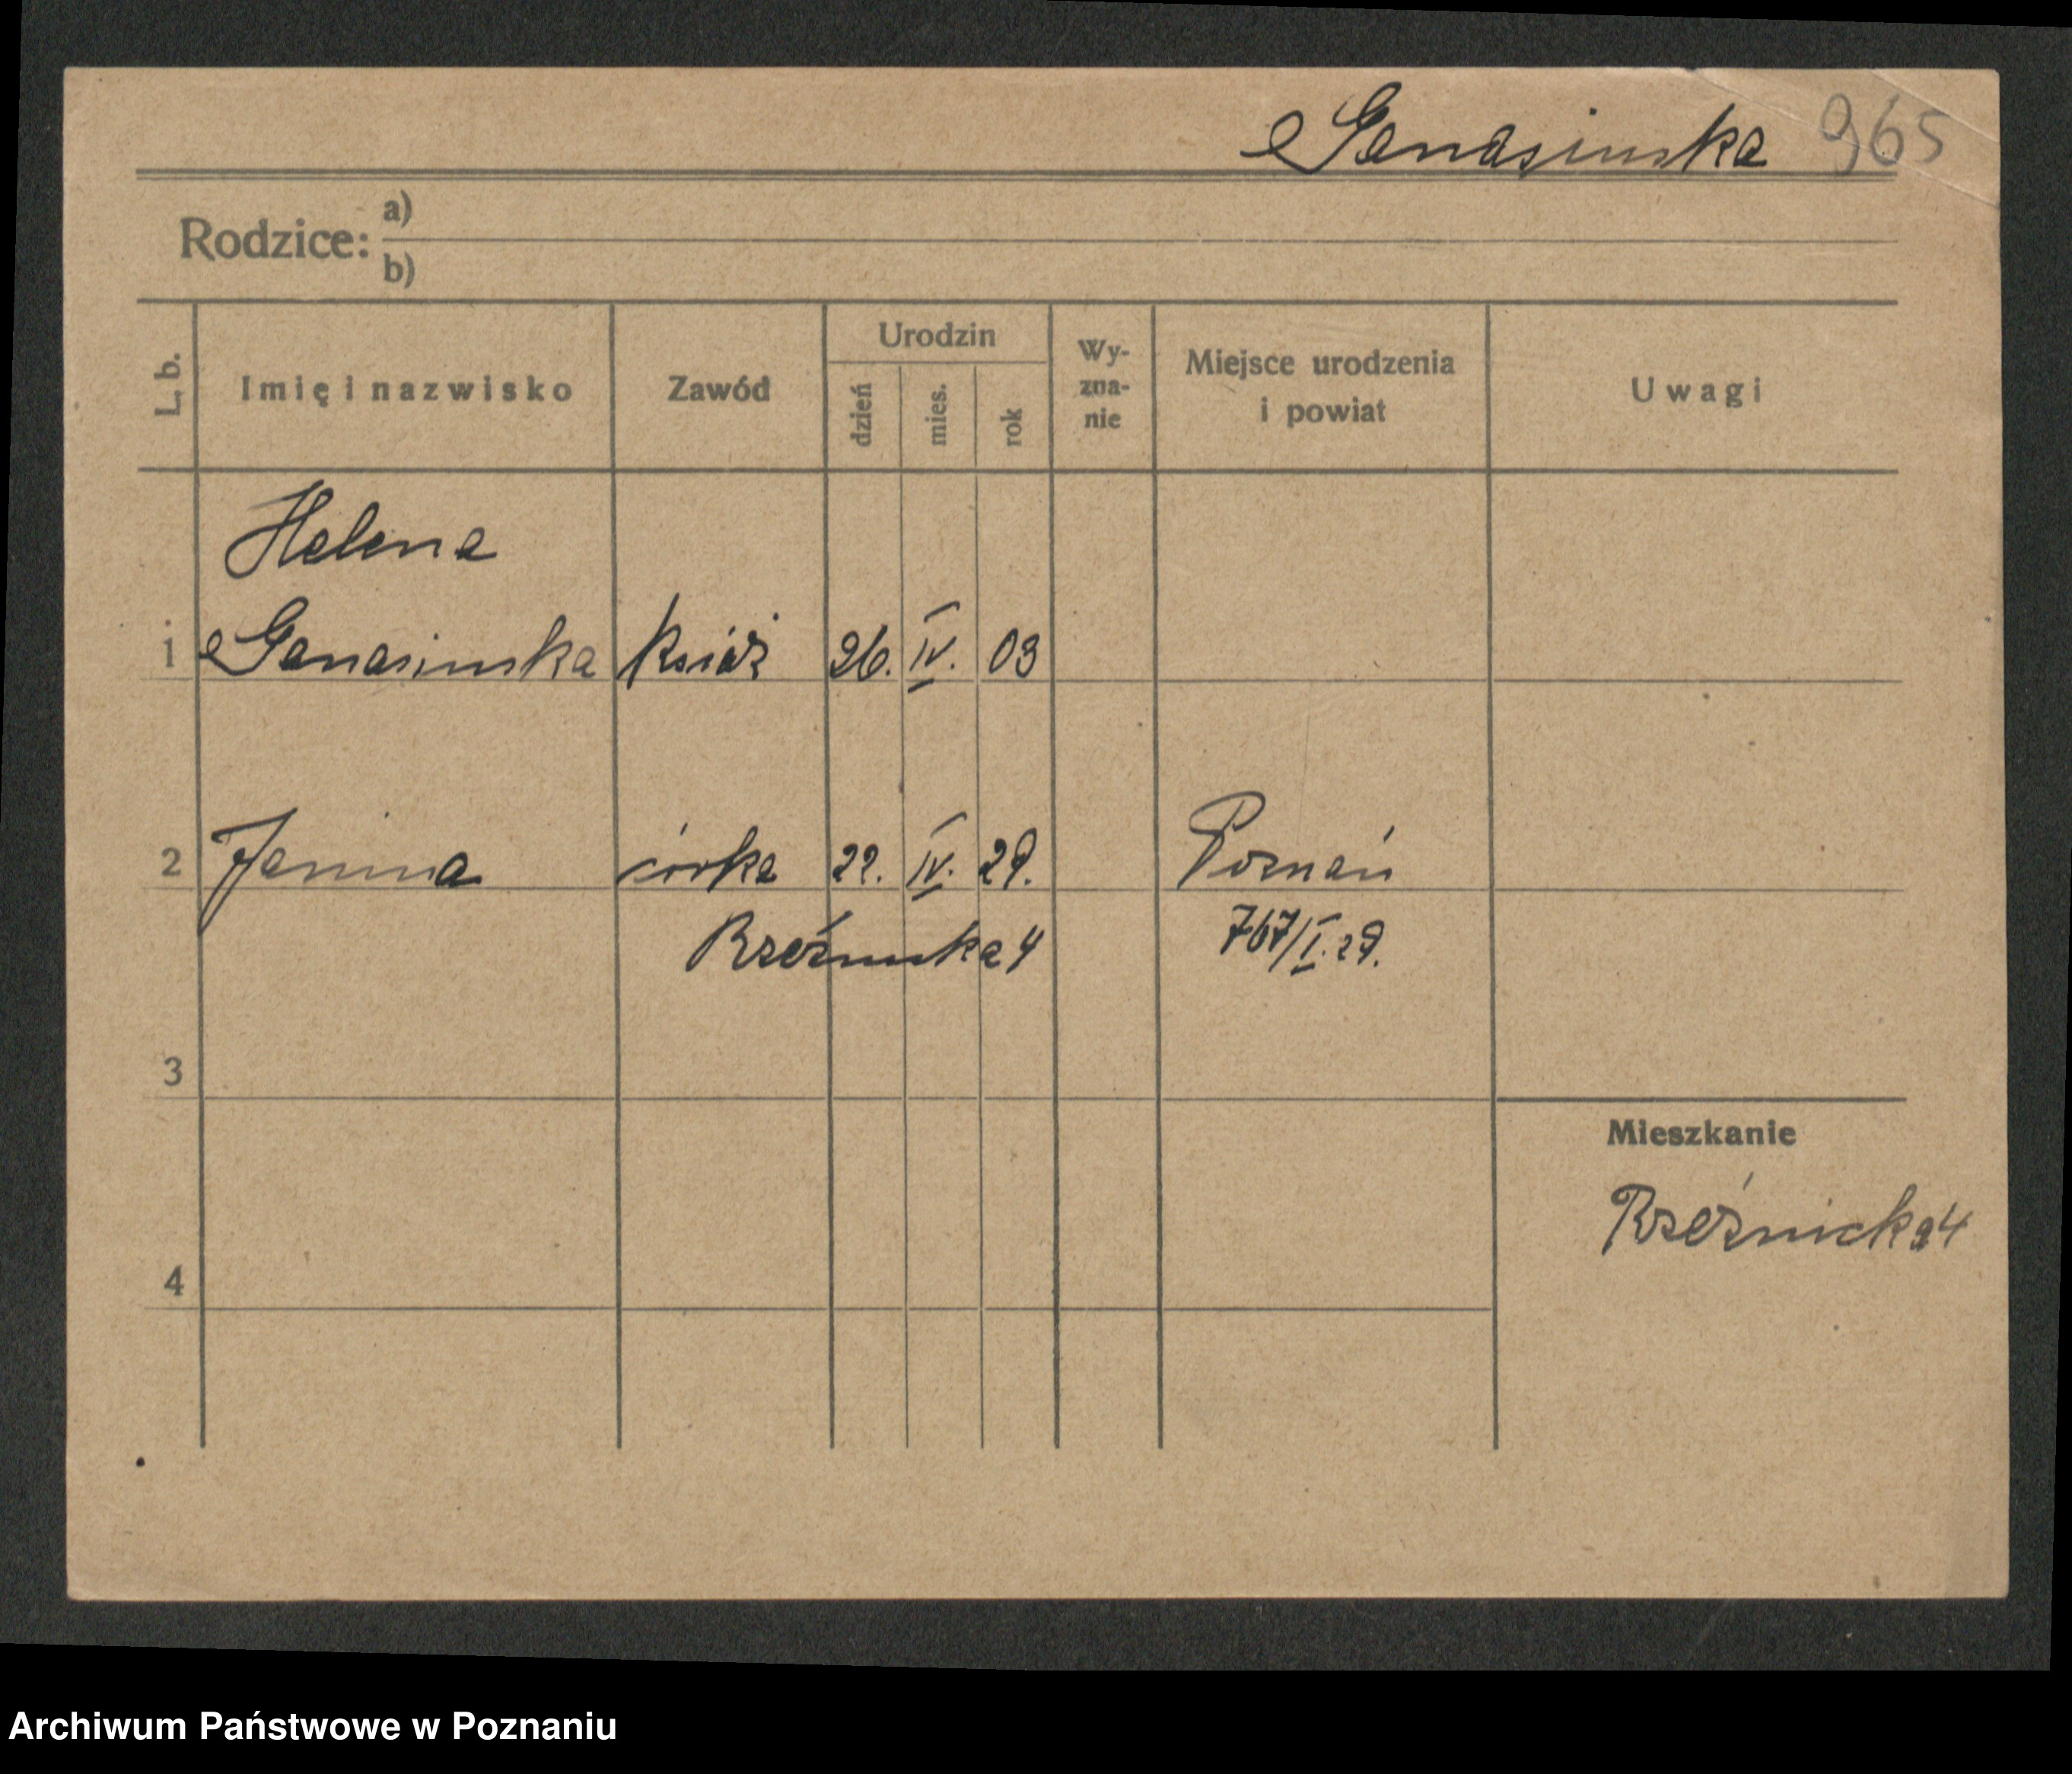 Ganasinska 965
Rodzice: a)
b)
L. b. Imię i nazwisko Zawód Urodzin dzień mies. rok Wy-zna-nie Miejsce urodzenia i powiat Uwagi
Helena
1 Ganasinska 26. IV. 03
2 Janina córka 22. IV. 29. Poznań
Rzeźnicka 4 767/I. 29.
3
Mieszkanie
Rzeźnicka 4
4
Archiwum Państwowe w Poznaniu